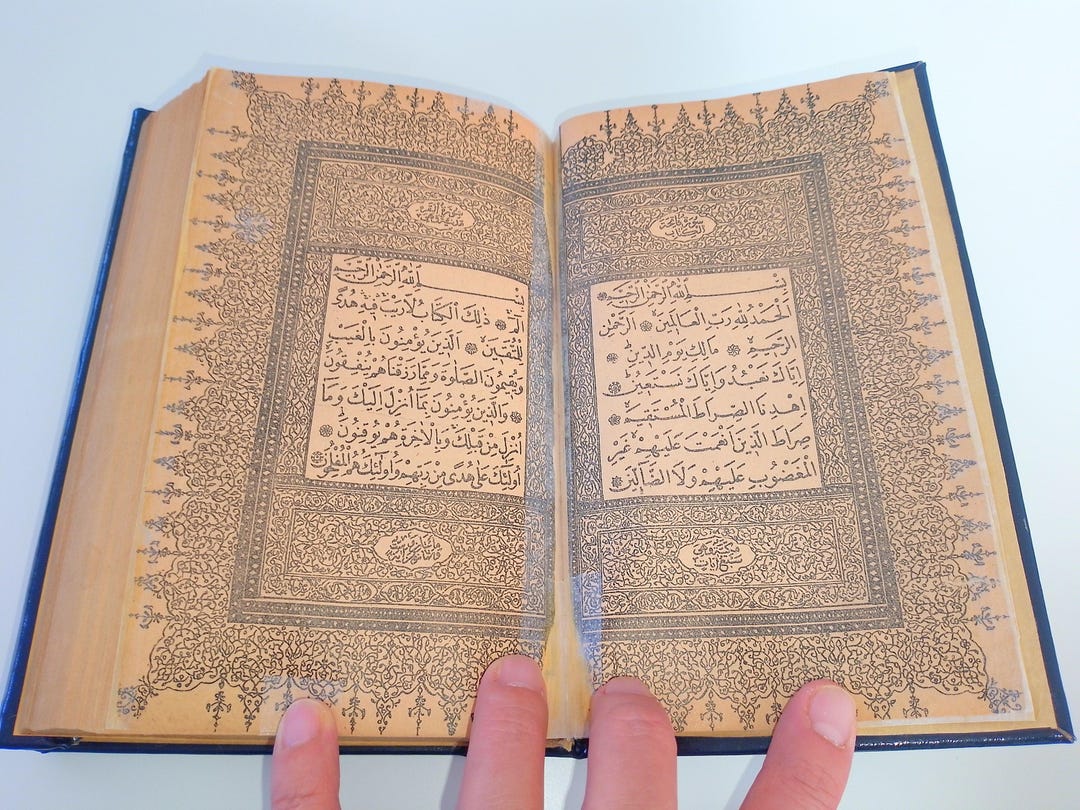 بِسْمِ اللّٰهِ الرَّحْمٰنِ الرَّحِيمِ
اَلْحَمْدُ لِلّٰهِ رَبِّ الْعَالَمِينَ ۞ اَلرَّحْمٰنِ
الرَّحِيمِ ۞ مَالِكِ يَوْمِ الدِّينِ ۞
اِيَّاكَ نَعْبُدُ وَاِيَّاكَ نَسْتَعِينُ ۞
اِهْدِنَا الصِّرَاطَ الْمُسْتَقِيمَ ۞
صِرَاطَ الَّذِينَ اَنْعَمْتَ عَلَيْهِمْ غَيْرِ
الْمَغْضُوبِ عَلَيْهِمْ وَلَا الضَّالِّينَ ۞
سبع ايات
بِسْمِ اللّٰهِ الرَّحْمٰنِ الرَّحِيمِ
الٓمٓ ۞ ذٰلِكَ الْكِتَابُ لَا رَيْبَ فِيهِ هُدًى
لِلْمُتَّقِينَ ۞ اَلَّذِينَ يُؤْمِنُونَ بِالْغَيْبِ
وَيُقِيمُونَ الصَّلٰوةَ وَمِمَّا رَزَقْنَاهُمْ يُنْفِقُونَ
۞ وَالَّذِينَ يُؤْمِنُونَ بِمَا اُنْزِلَ اِلَيْكَ وَمَا
اُنْزِلَ مِنْ قَبْلِكَ وَبِالْاٰخِرَةِ هُمْ يُوقِنُونَ ۞
اُولٰٓئِكَ عَلٰى هُدًى مِنْ رَبِّهِمْ وَاُولٰٓئِكَ هُمُ الْمُفْلِحُونَ ۞